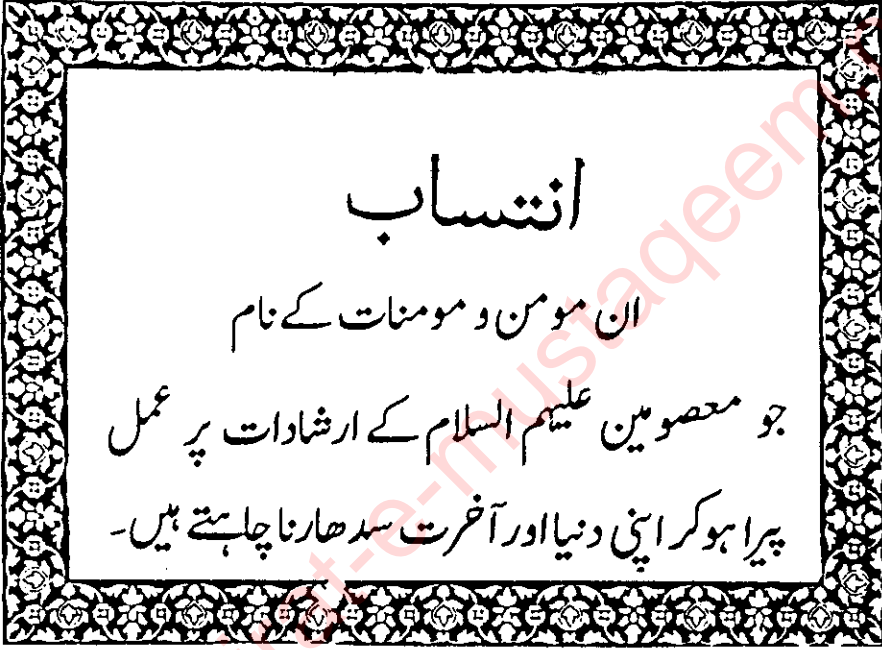 انتساب
ان مومن و مومنات کے نام
جو معصومین علیہم السلام کے ارشادات پر عمل
پیرا ہوکر اپنی دنیا اور آخرت سدھارنا چاہتے ہیں۔
rat-e-mustaqeem